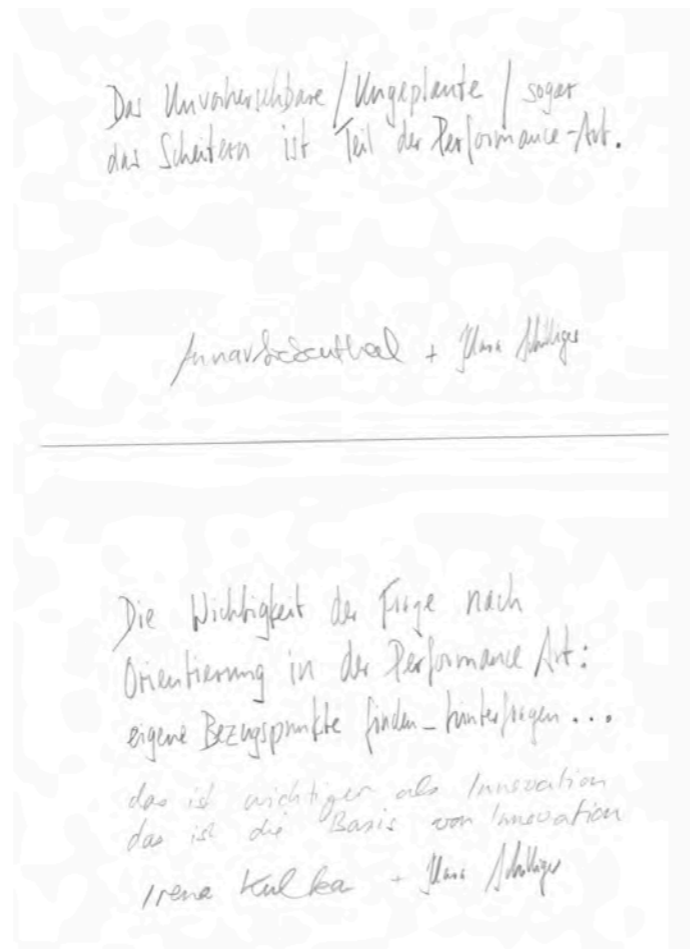 Das Unvorhersehbare / Ungeplante / sogar
das Scheitern ist Teil der Performance-Art.
+ Klara Schilliger
Die Wichtigkeit der Frage nach
Orientierung in der Performance Art:
eigene Bezugspunkte finden_hinterfragen...
das ist wichtiger als Innovation
das ist die Basis von Innovation
Irena Kulka + Klara Schilliger